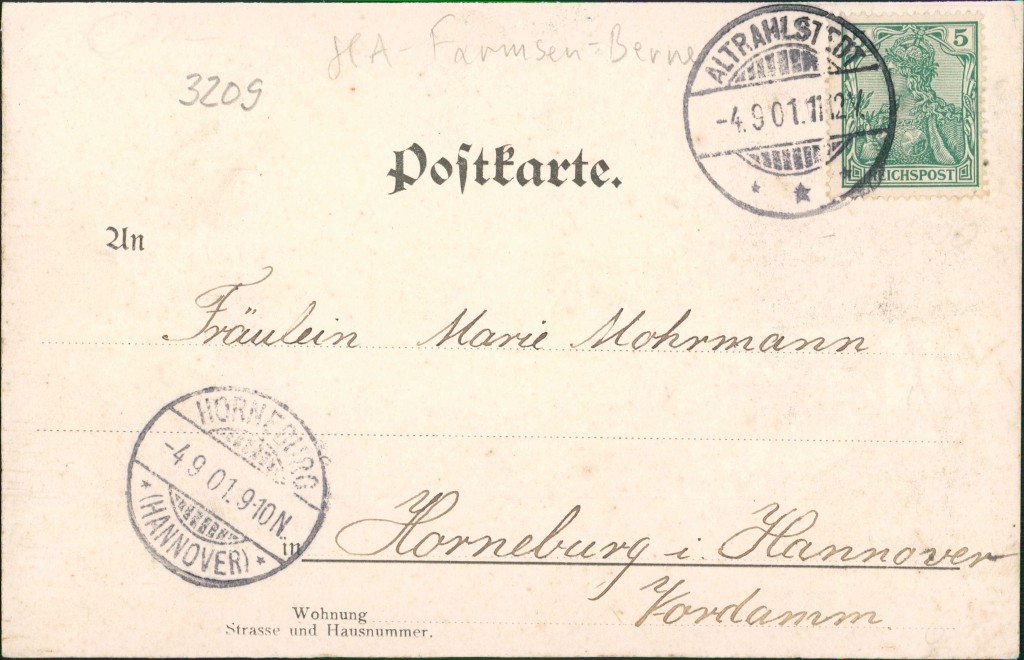 HA - Farmsen = Berne
3209
ALTRAHLSTEDT
-4.9 01.11-12V.
5
REICHSPOST
Postkarte.
An
Fräulein Marie Mohrmann
HORNEBURG
-4.9 01.9-10N.
* (HANNOVER) *
in Horneburg i. Hannover
Vordamm.
Wohnung
Strasse und Hausnummer.